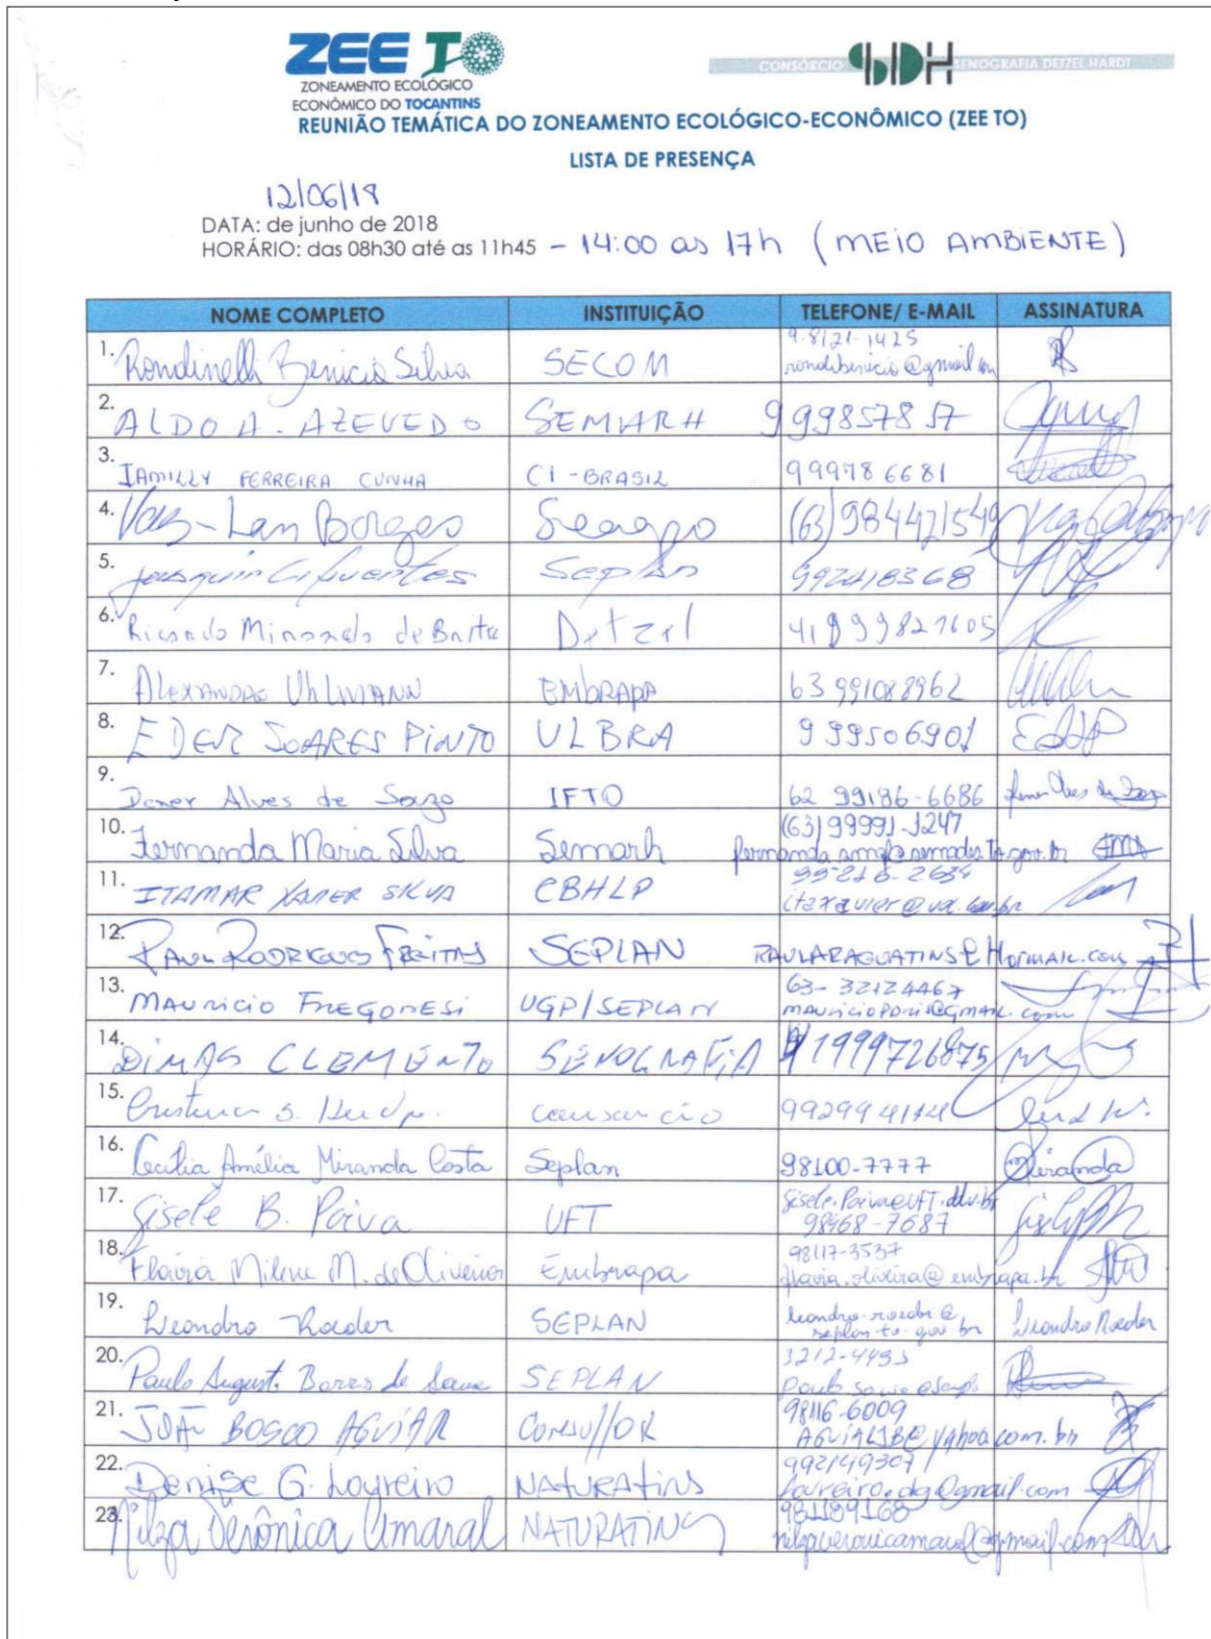 ZEE TO
ZONEAMENTO ECOLÓGICO
ECONÔMICO DO TOCANTINS
CONSÓRCIO SDH SENOGRAFIA DETZEL HARDT
REUNIÃO TEMÁTICA DO ZONEAMENTO ECOLÓGICO-ECONÔMICO (ZEE TO)
LISTA DE PRESENÇA
12/06/18
DATA: de junho de 2018
HORÁRIO: das 08h30 até as 11h45 - 14:00 as 17h (MEIO AMBIENTE)
NOME COMPLETO INSTITUIÇÃO TELEFONE/ E-MAIL ASSINATURA
1. Rondinelli Benicio Silva SECOM 9.8121-1425
rondibenicio@gmail.com
2. ALDO A. AZEVEDO SEMARH 999857857
3. IAMILLY FERREIRA CUNHA CI-BRASIL 999786681
4. Borges Seagro (63) 984421549
5. Joaquin Cifuentes Seplan 992418368
6. Ricardo Miranda de Britez Detzel 41 999821605
7. Alexandre Uhlmann EMBRAPA 63 991088962
8. EDER SOARES PINTO ULBRA 999506901
9. Alves de Souza IFTO 62 99186-6686
10. Fernanda Maria Silva Semarh (63) 99991-1247
11. ITAMAR XAVIER SILVA CBHLP 99218-2634
12. RAUL RODRIGUES FREITAS SEPLAN RAULARAGUATINS@HOTMAIL.COM
13. MAURICIO FREGONESI UGP/SEPLAN 63-32124467
14. DIMAS CLEMENTO SENOGRAFIA 41999726875
15. consorcio 992994114
16. Cecilia Amélia Miranda Costa Seplan 98100-7777 Miranda
17. Gisele B. Paiva UFT gisele.Paiva@UFT.edu.br
98468-7687
18. Flávia Milene M. de Oliveira Embrapa 98117-3537
flavia.oliveira@embrapa.br
19. Leandro Roeder SEPLAN leandro.roeder@
seplan.to.gov.br Leandro Roeder
20. Paulo August. Barros de Sousa SEPLAN 3212-4493
21. JOÃO BOSCO AGUIAR Consultor 98116-6009
22. Denise G. Loureiro NATURATINS 992149307
loureiro.dg@gmail.com
23. Nilza Verônica Amaral NATURATINS 981189168
nilzaveronicamaral@gmail.com